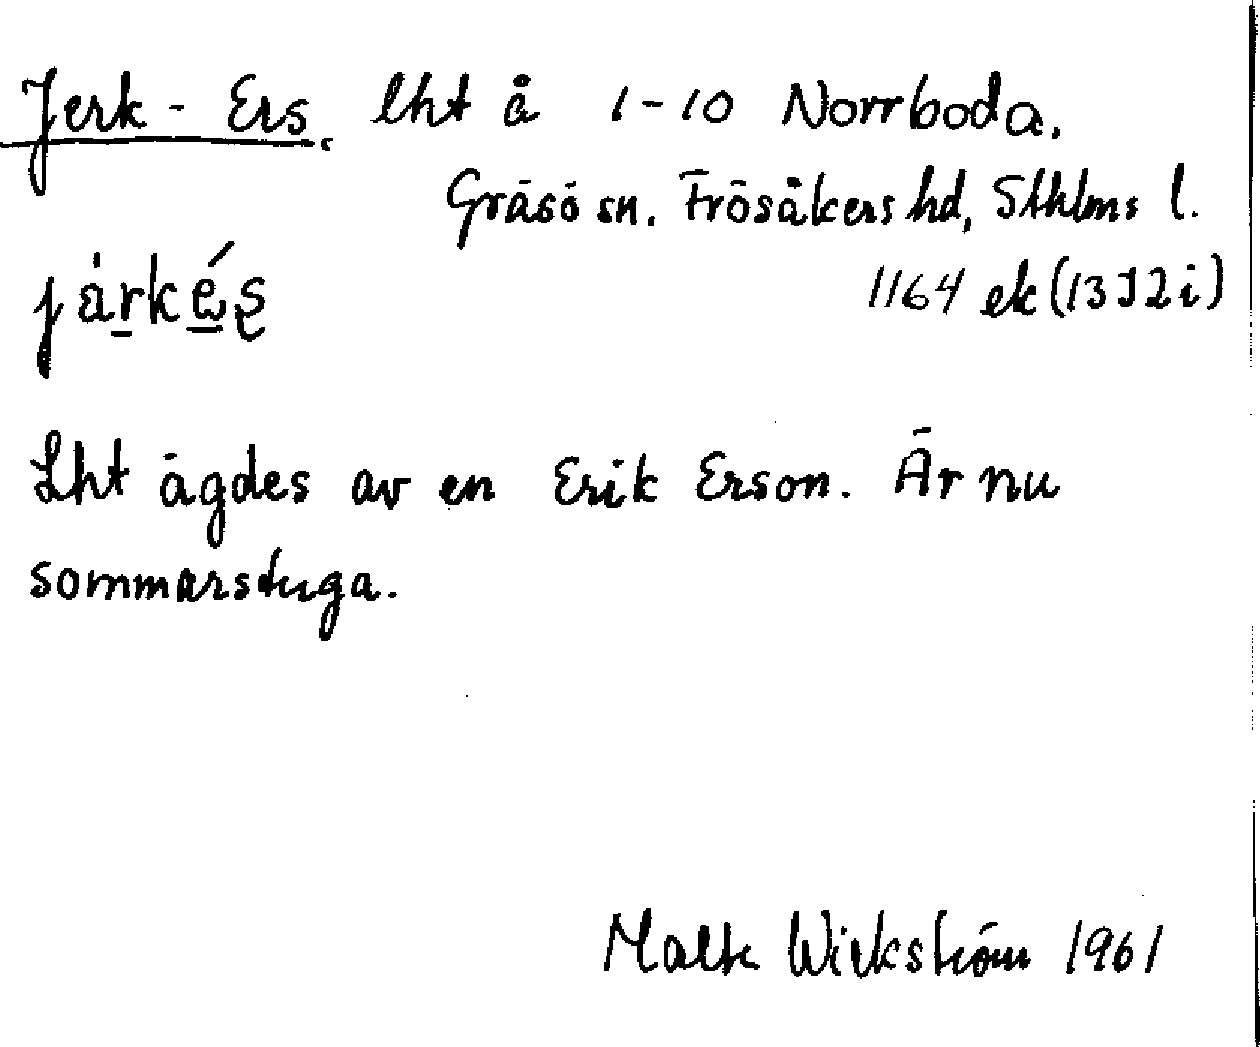 Jerk - Ers. lht å 1-10 Norrboda,
Gräsö sn. Frösåkers hd, Sthlms l.
1164 ek (13 I 2 i)
Lht ägdes av en Erik Erson. Är nu
sommarstuga.
Malte Wickström 1961